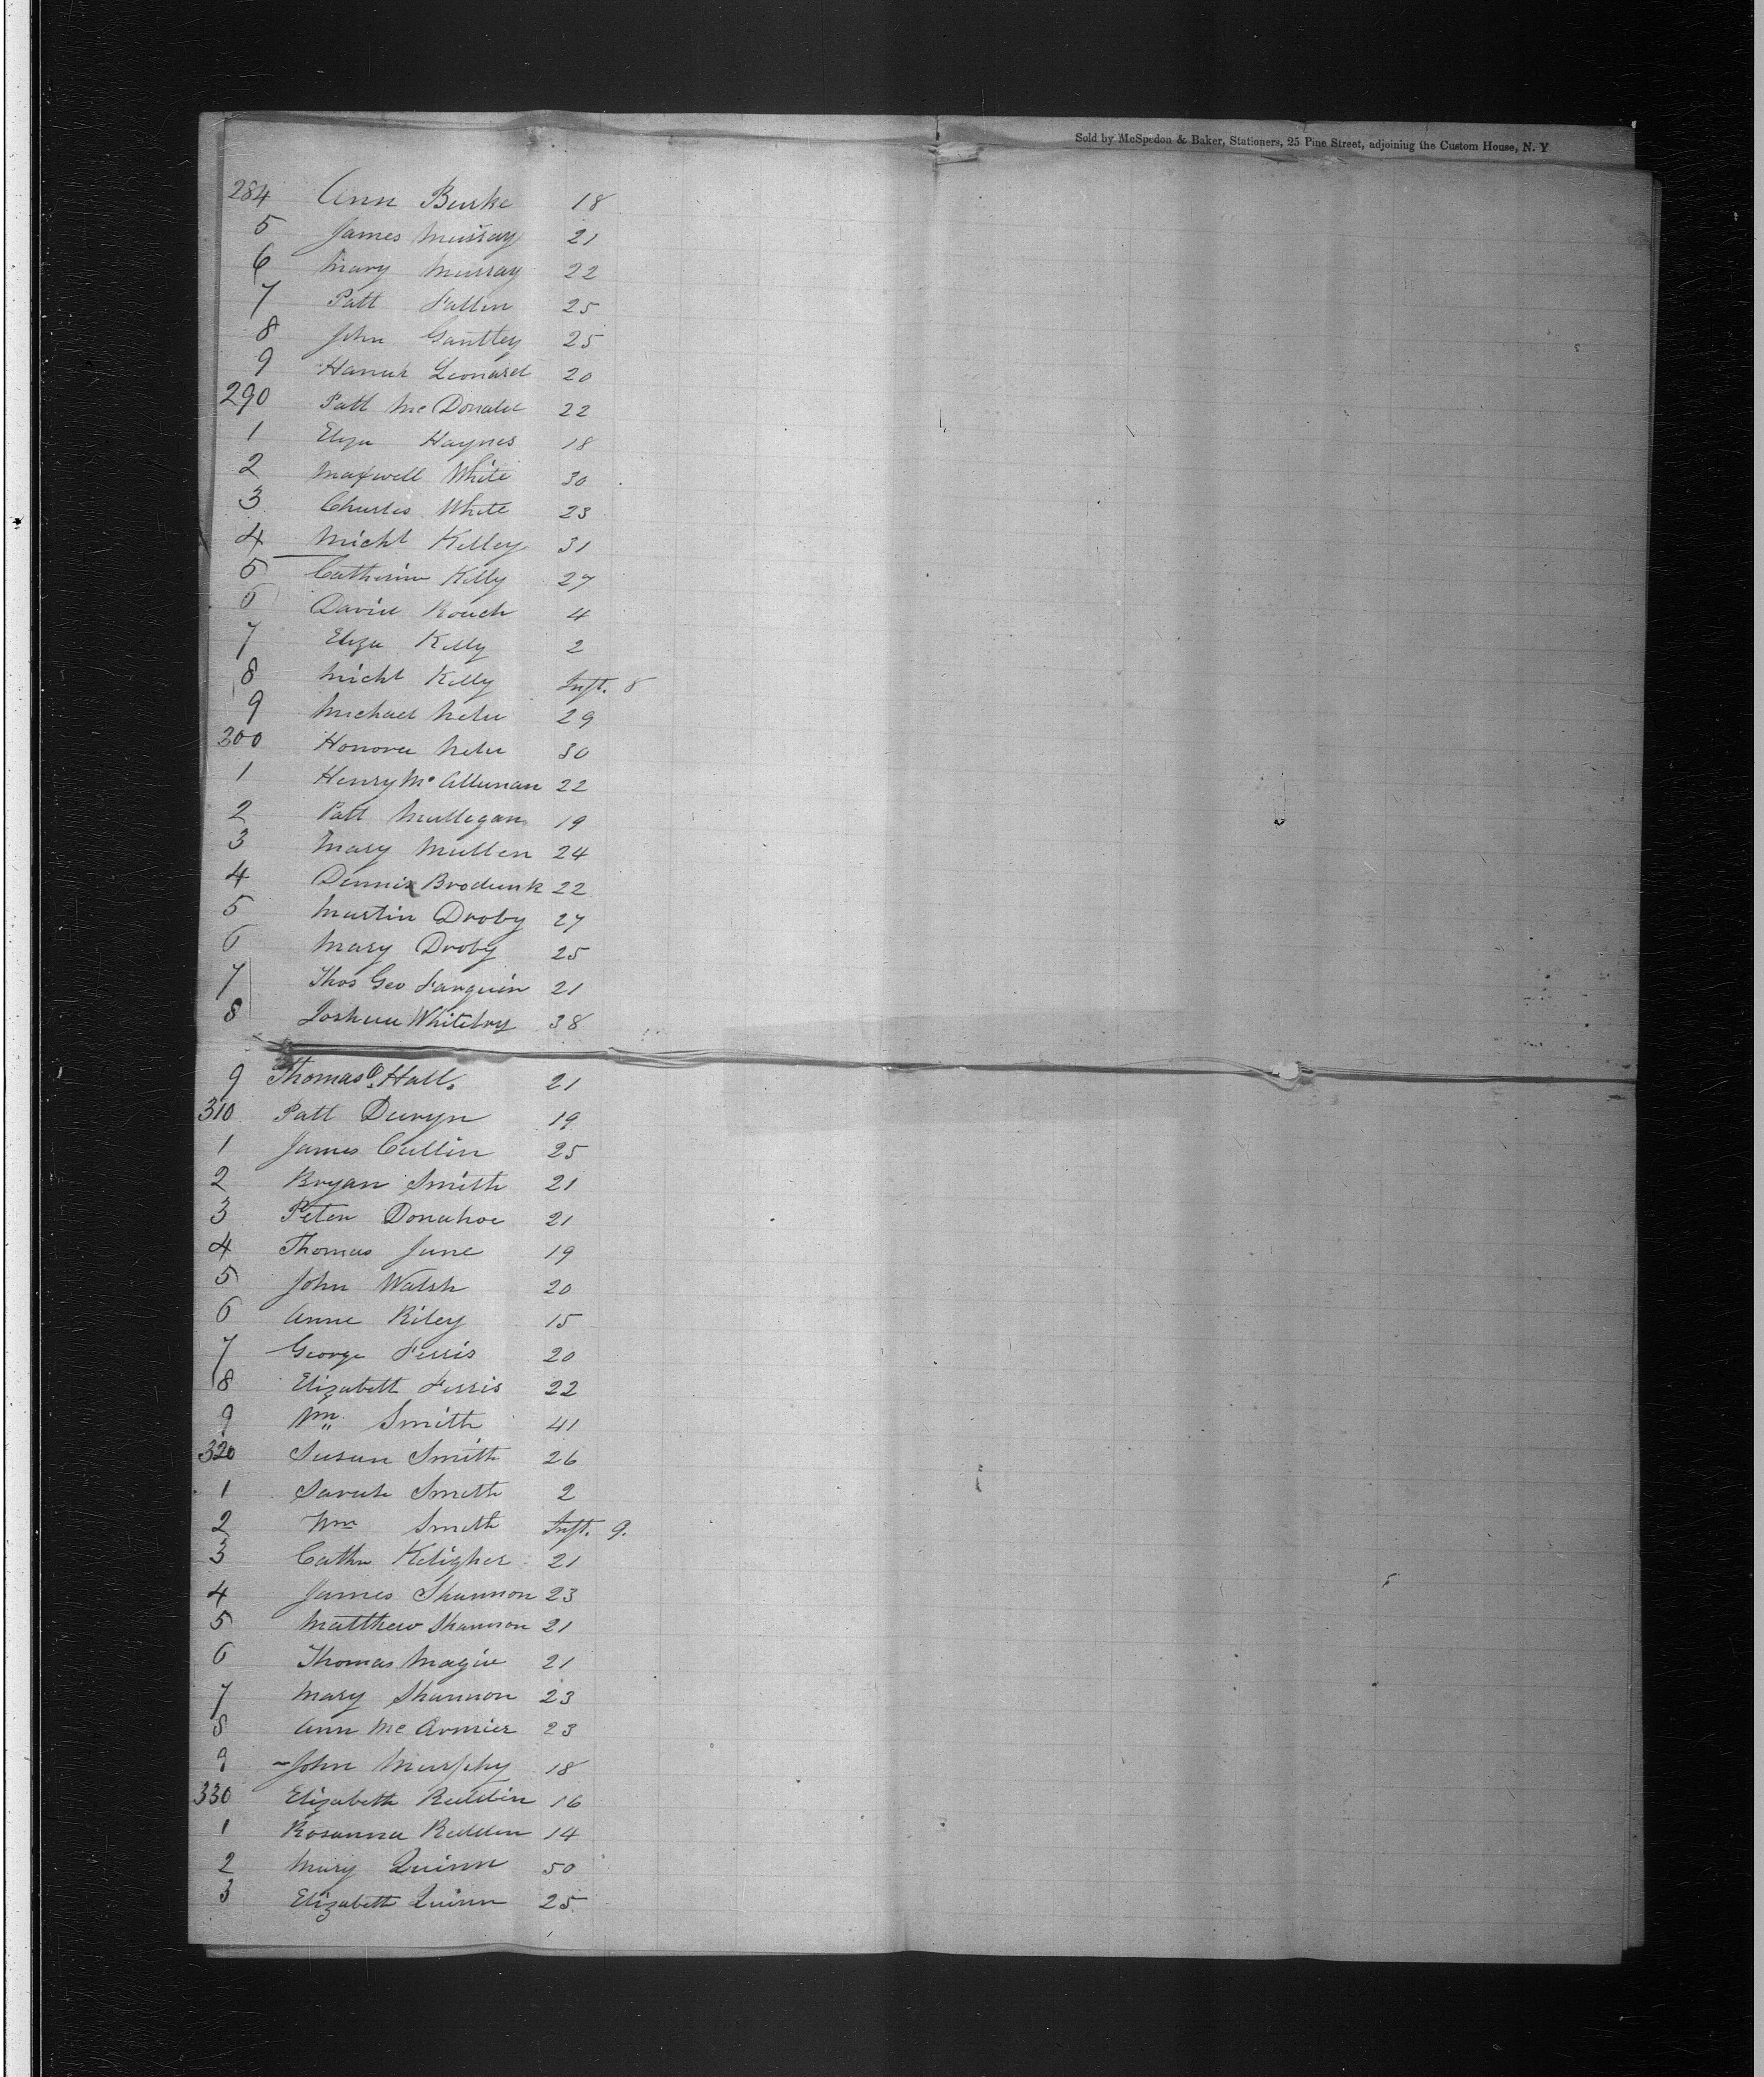 Sold by McSpedon & Baker, Stationers, 25 Pine Street, adjoining the Custom House, N. Y
284 Ann Burke 18
5 James Murray 21
6 Mary Murray 22
7 Patt Fallin 25
8 John Gantley 25
9 Hanah Leonard 20
290 Patt McDonald 22
1 Eliza Haynes 18
2 Maxwell White 30
3 Charles White 23
4 Michl Kelley 31
5 Catherine Kelly 27
6 David Rouch 4
7 Eliza Kelly 2
8 Michl Kelly Inft. 8
9 Michael 29
300 Honora 30
1 Henry Mc 22
2 Patt Mullegan 19
3 Mary Mullen 24
4 Dennis 22
5 Martin Droby 27
6 Mary Droby 25
7 Thos Geo Farquin 21
8 Joshua 38
9 Thomas Hall 21
310 Patt 19
1 James Cullin 25
2 Bryan Smith 21
3 Peter Donahoe 21
4 Thomas June 19
5 John Walsh 20
6 Anne Riley 15
7 George Ferris 20
8 Elizabeth Ferris 22
9 Wm Smith 41
320 Susan Smith 26
1 Sarah Smith 2
2 Wm Smith Inft. 9.
3 Cathn Keligher 21
4 James Shannon 23
5 Matthew Shannon 21
6 Thomas 21
7 Mary Shannon 23
8 Ann Mc 23
9 John Murphy 18
330 Elizabeth Reddin 16
1 Rosanna Redden 14
2 Mary Quinn 50
3 Elizabeth Quinn 25